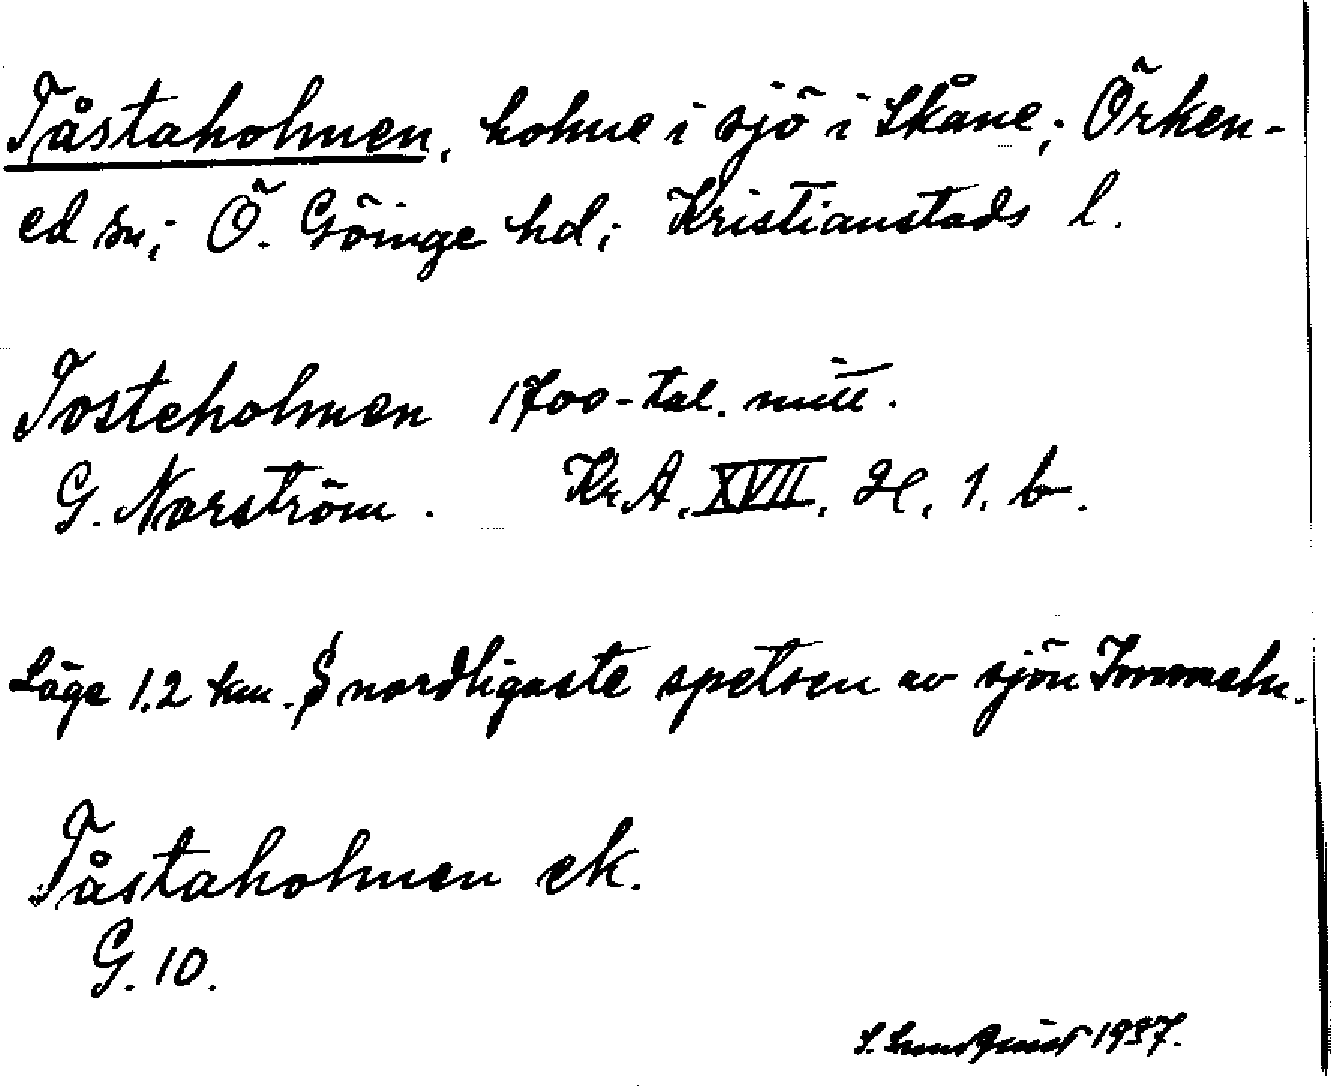 Tåstaholmen, holme i sjö i Skåne; Örken-
ed sn; Ö. Göinge hd; Kristianstads l.
Tosteholmen 1700-tal. mitt.
G. Norström. Kr.A. XVII. H. 1. b.
Läge 1.2 km. S nordligaste spetsen av sjön Immeln.
Tåstaholmen ek.
G. 10.
S. Lundquist 1937.